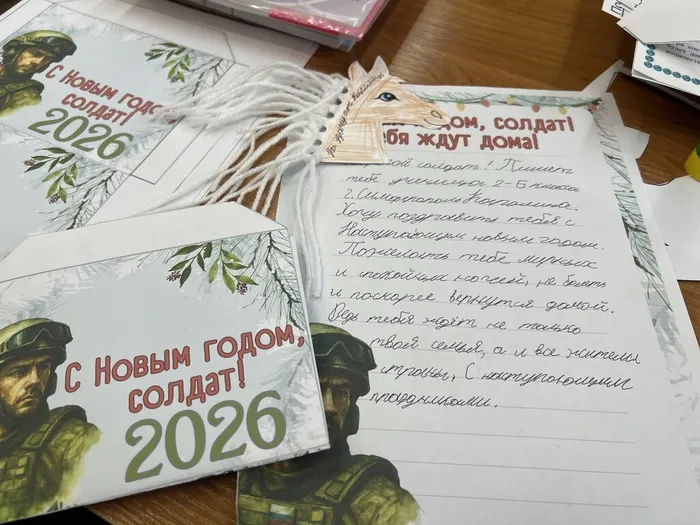 С Новым годом,
солдат!
2026
С Новым годом,
солдат!
2026
годом, солдат!
ждут дома!
солдат! Пишет
тебе ученица 2-Б класса
г. Симферополь
Хочу поздравить тебя с
Наступающим новым годом.
Пожелать тебе мирных
и спокойных ночей, не болеть
и поскорее вернутся домой.
Ведь тебя ждёт не только
твоя семья, а и все жители
страны, С наступающими
праздниками.